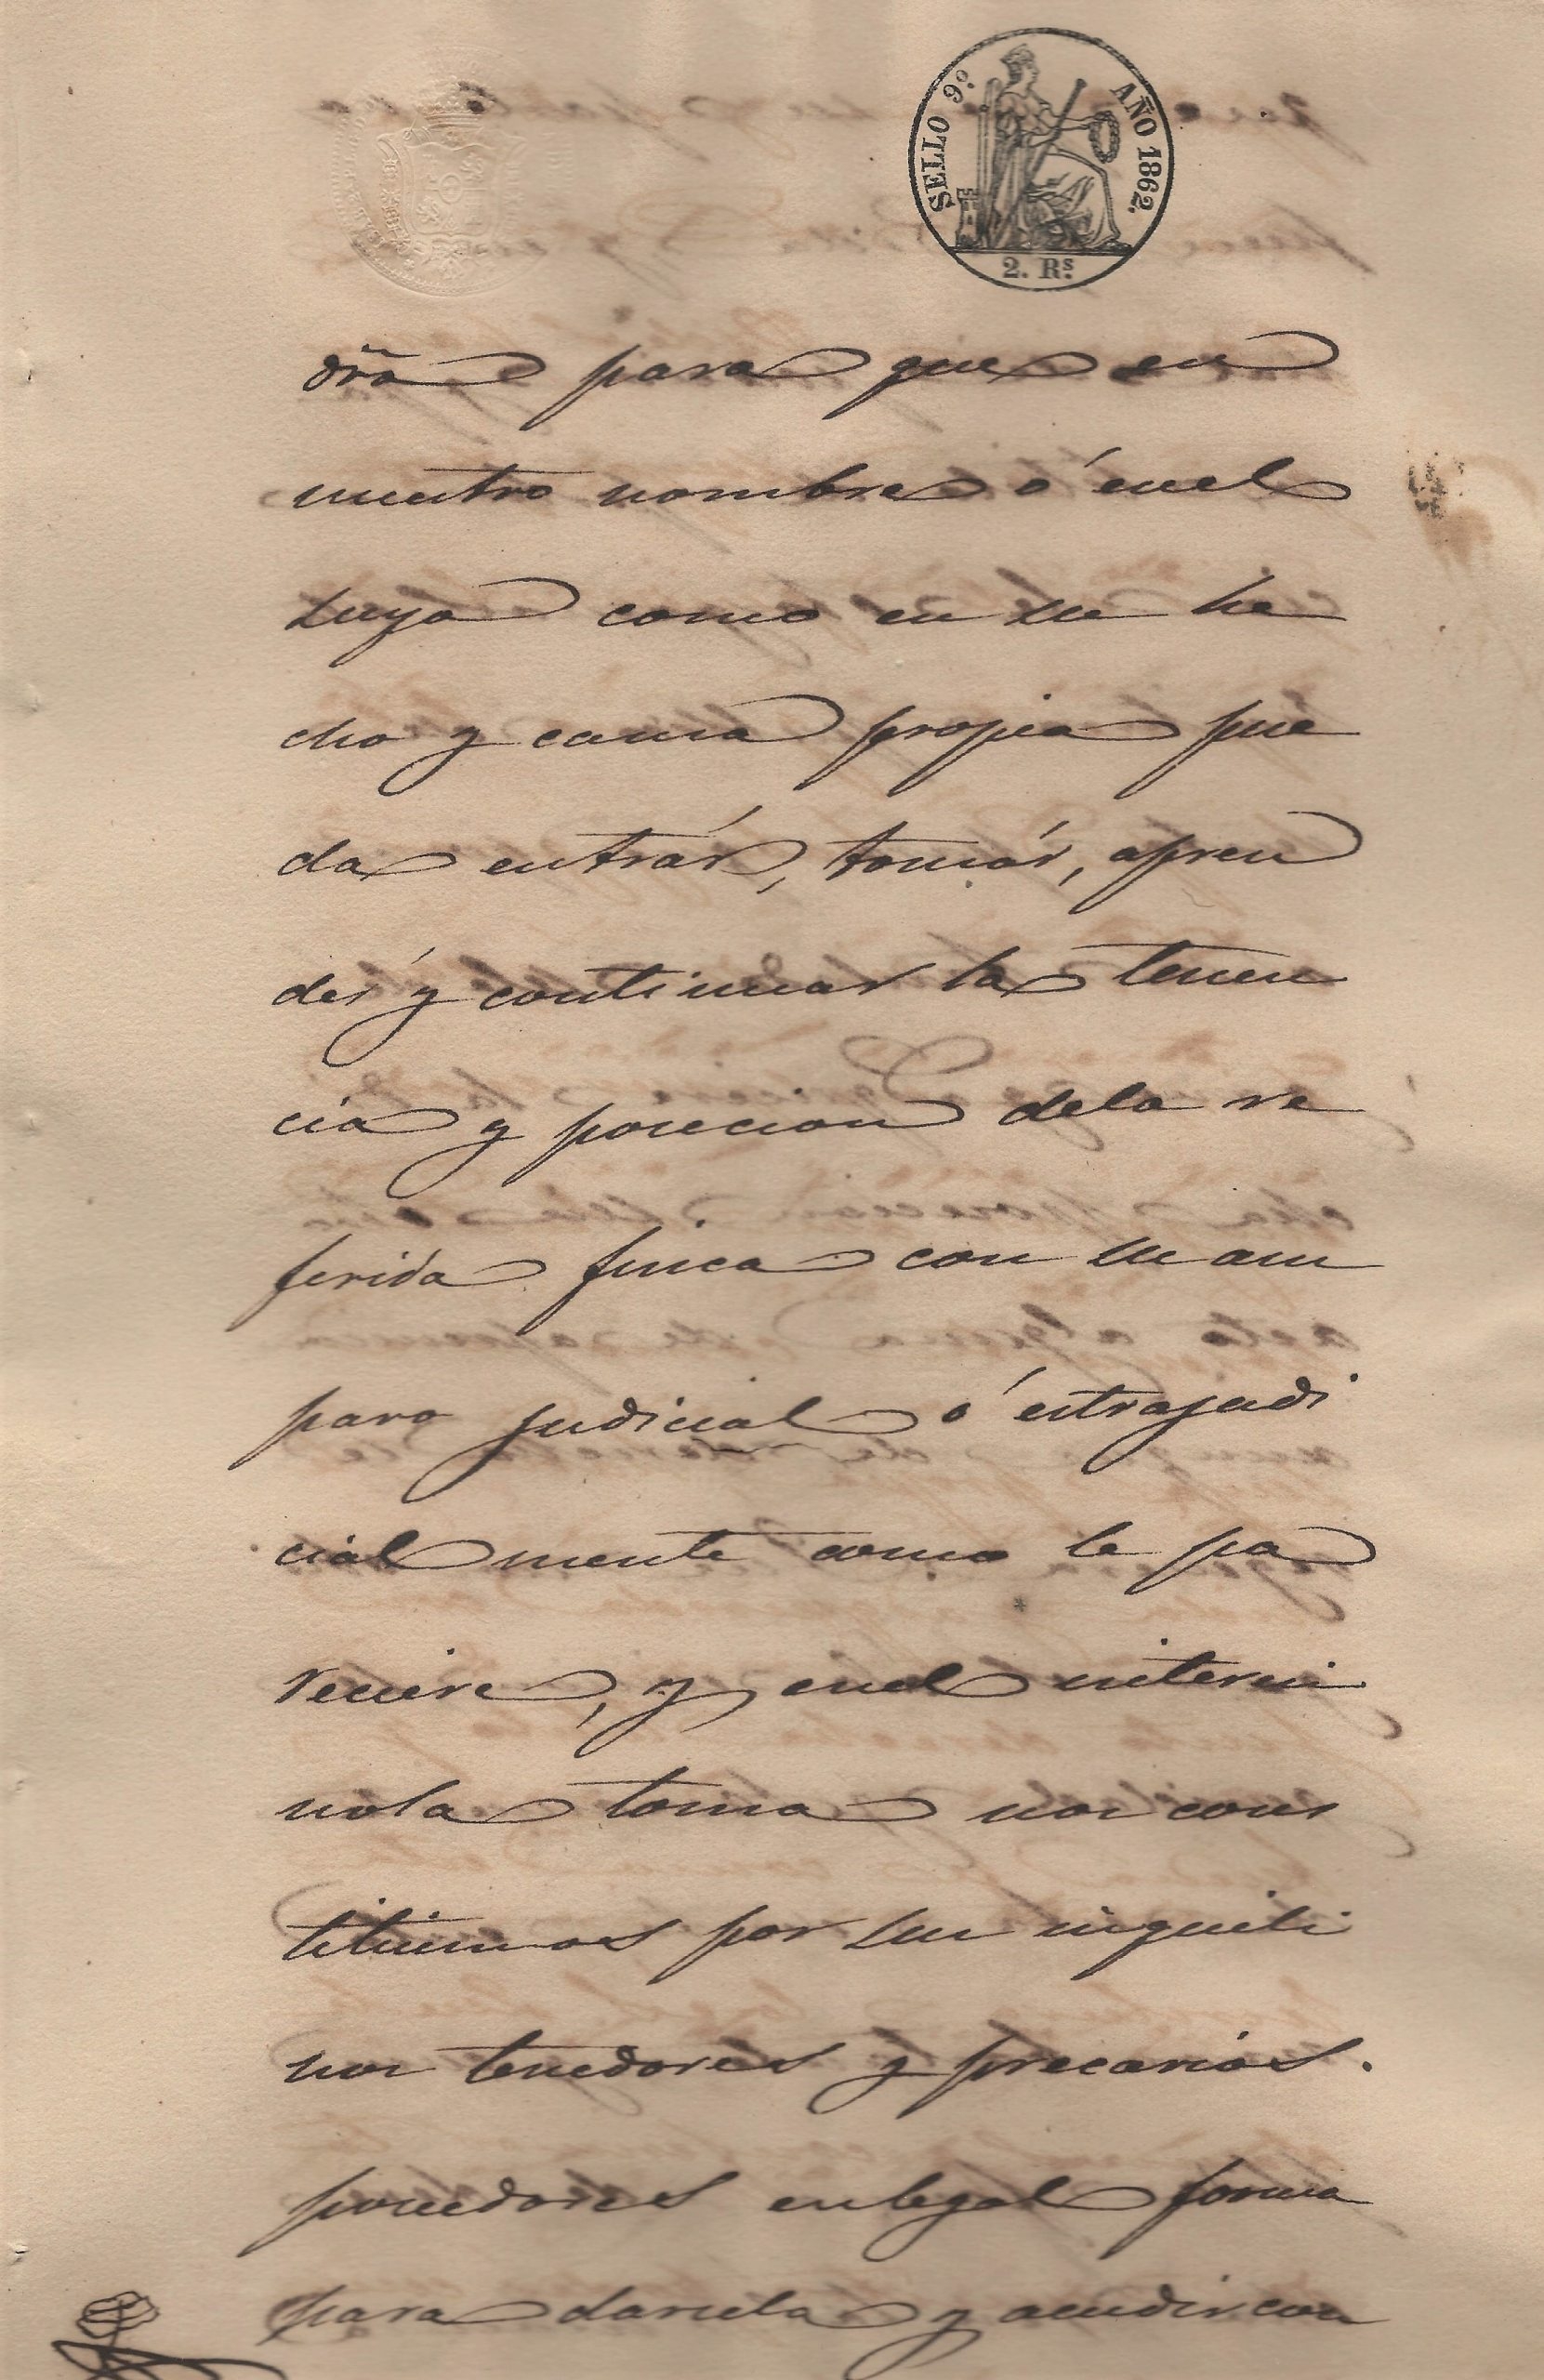 SELLO 9º. AÑO 1862.
2. Rs.
dra para que en
nuestro nombre ó en el
suyo como en su he
cho y causa propia pue
da entrár, tomár, apren
dér y continuar la tenen
cia y posecion de la re
ferida finca con su am
paro judicial ó estrajudi
cial mente como le pa
reciere, y en el interin
no la toma nos cons
tituimos por sus inquili
nos tenedores y precarios.
poseedores en legal forma
para darsela y acudir con